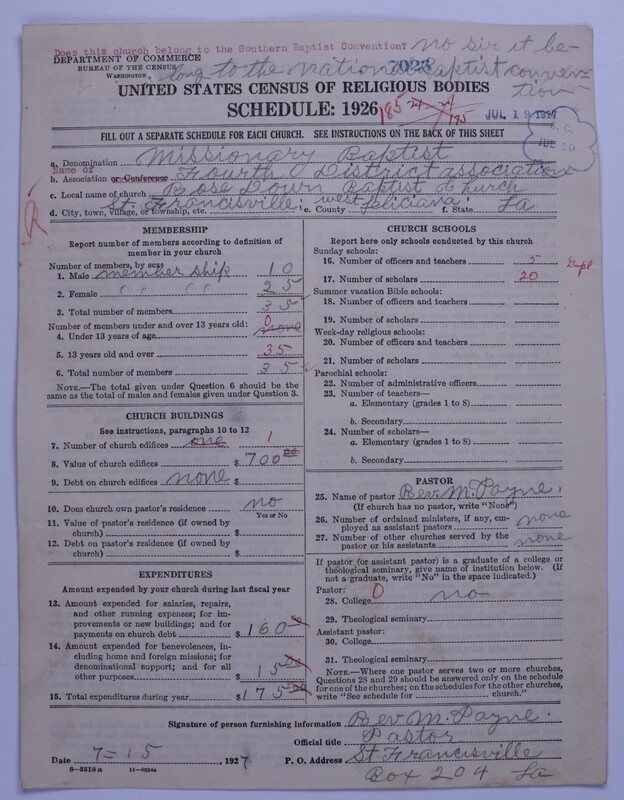 Does this church belong to the Southern Baptist Convention? No sir it be-
DEPARTMENT OF COMMERCE
BUREAU OF THE CENSUS
WASHINGTON
7023
long to the national Baptist conven-
tion
UNITED STATES CENSUS OF RELIGIOUS BODIES
SCHEDULE: 1926
185
175
JUL 18 1927
JUL 19
FILL OUT A SEPARATE SCHEDULE FOR EACH CHURCH. SEE INSTRUCTIONS ON THE BACK OF THIS SHEET
a. Denomination Missionary Baptist
Name of
b. Association or Conference Fourth District association
c. Local name of church Rose Down Baptist Church
d. City, town, village, or township, etc. St. Francisville; e. County west feliciana; f. State La
R
MEMBERSHIP
Report number of members according to definition of
member in your church
Number of members, by sex:
1. Male member ship 10
2. Female " " 25
3. Total number of members 35
Number of members under and over 13 years old: 0
4. Under 13 years of age none
5. 13 years old and over 35
6. Total number of members 35
NOTE.—The total given under Question 6 should be
the same as the total of males and females given under Question 3.
CHURCH BUILDINGS
See instructions, paragraphs 10 to 12
7. Number of church edifices one 1
8. Value of church edifices $ 700 00
9. Debt on church edifices none $
10. Does church own pastor's residence no
Yes or No
11. Value of pastor's residence (if owned by
church) $
12. Debt on pastor's residence (if owned by
church) $
EXPENDITURES
Amount expended by your church during last fiscal year
13. Amount expended for salaries, repairs,
and other running expenses; for im-
provements or new buildings; and for
payments on church debt $ 160 00
14. Amount expended for benevolences, in-
cluding home and foreign missions; for
denominational support; and for all
other purposes $ 15 00
15. Total expenditures during year $ 175 00
CHURCH SCHOOLS
Report here only schools conducted by this church
Sunday schools:
16. Number of officers and teachers 5 Dupl
17. Number of scholars 20
Summer vacation Bible schools:
18. Number of officers and teachers
19. Number of scholars
Week-day religious schools:
20. Number of officers and teachers
21. Number of scholars
Parochial schools:
22. Number of administrative officers
23. Number of teachers—
a. Elementary (grades 1 to 8)
b. Secondary
24. Number of scholars—
a. Elementary (grades 1 to 8)
b. Secondary
PASTOR
25. Name of pastor Rev. M. Payne.
(If church has no pastor, write "None")
26. Number of ordained ministers, if any, em-
ployed as assistant pastors none
27. Number of other churches served by the
pastor or his assistants none
If pastor (or assistant pastor) is a graduate of a college or
theological seminary, give name of institution below. (If
not a graduate, write "No" in the space indicated.)
Pastor: 0
28. College no
29. Theological seminary
Assistant pastor:
30. College
31. Theological seminary
NOTE.—Where one pastor serves two or more churches,
Questions 28 and 29 should be answered only on the schedule
for one of the churches; on the schedules for the other churches,
write "See schedule for church."
Signature of person furnishing information Rev. M. Payne.
Official title Pastor
Date 7=15, 1927 P. O. Address St Francisville
8—5518a 11—9054a Box 204 La